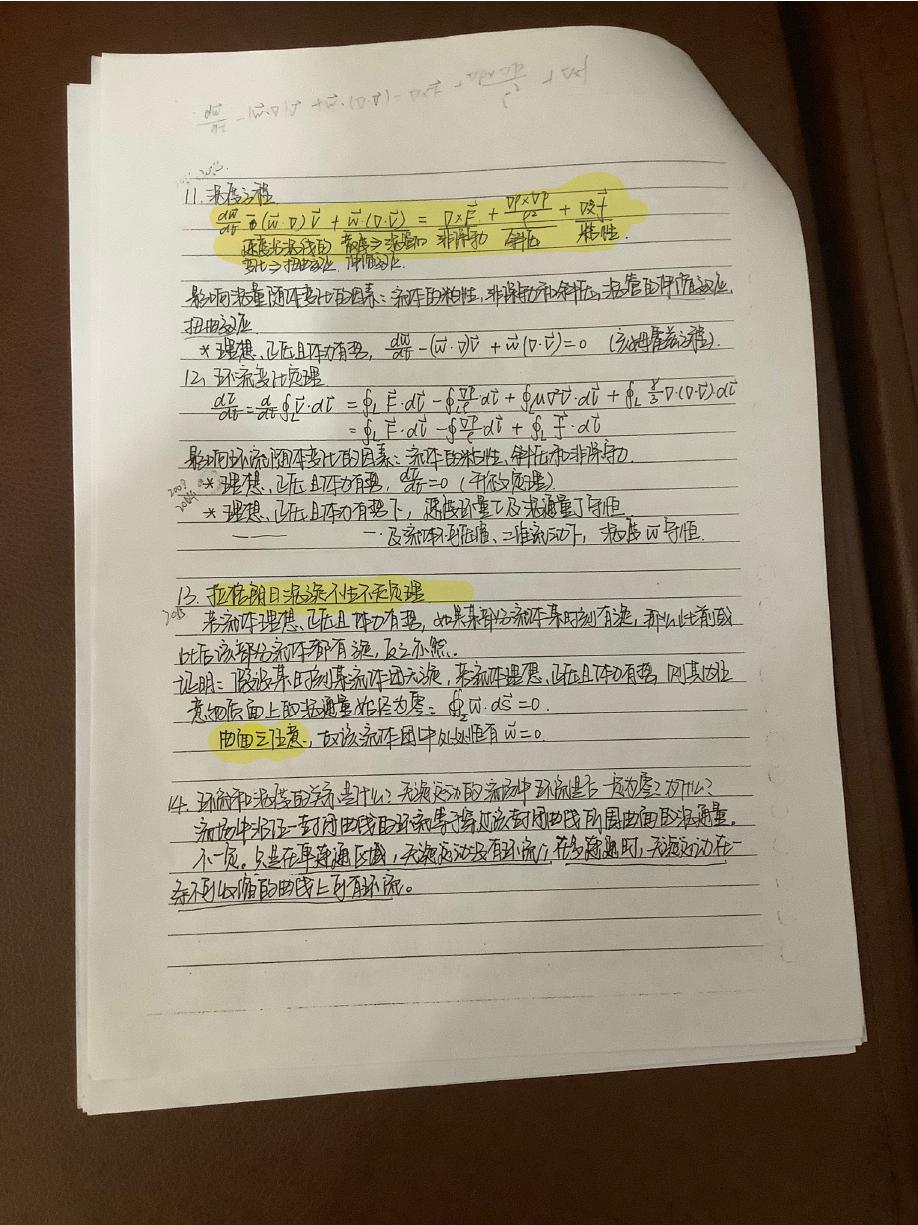 dω⃗/dt - (ω⃗·∇)v⃗ + ω⃗·(∇·v⃗) = ∇×F⃗ + ∇ρ×∇p/ρ² + ∇×f
11. 涡度方程
dω⃗/dt - (ω⃗·∇)v⃗ + ω⃗·(∇·v⃗) = ∇×F⃗ + ∇ρ×∇p/ρ² + ∇×f⃗
速度沿涡线的 散度⇒涡管的 非保守力 斜压 粘性.
变化⇒扭曲效应 伸缩效应
影响涡量随体变化的因素: 流体的粘性、非保守力和斜压, 涡管的伸缩效应,
扭曲效应
* 理想、正压且体力有势, dω⃗/dt - (ω⃗·∇)v⃗ + ω⃗(∇·v⃗) = 0 (亥姆霍兹方程).
12、环流变化定理
dΓ/dt = d/dt ∮_L v⃗·dl⃗ = ∮_L F⃗·dl⃗ - ∮_L ∇p/ρ·dl⃗ + ∮_L μ∇²v⃗·dl⃗ + ∮_L γ/3 ∇·(∇·v⃗)dl⃗
= ∮_L F⃗·dl⃗ - ∮ ∇p/ρ dl⃗ + ∮_L f⃗·dl⃗
影响环流随体变化的因素: 流体的粘性、斜压和非保守力.
2009 * 理想、正压且体力有势, dΓ/dt = 0 (开尔文定理)
2014 * 理想、正压且体力有势下, 速度环量Γ及涡通量J守恒
—— — · 及流体不可压缩、二维流动下, 涡度ω⃗守恒.
13. 拉格朗日涡旋不生不灭定理
2015 若流体理想、正压且体力有势, 如果某部分流体某时刻有旋, 那么此前或
此后该部分流体都有旋, 反之亦然.
证明: 假设某时刻某流体团无旋, 若流体理想、正压且体力有势, 则其内任
意物质面上的涡通量始终为零: ∯_Σ ω⃗·ds⃗ = 0.
由面Σ任意, 故该流体团中处处恒有 ω⃗=0.
14. 环流和涡度的关系是什么? 无旋运动的流场中环流是否一定为零? 为什么?
流场中沿任一封闭曲线的环流等于穿过该封闭曲线所围曲面的涡通量。
不一定。只是在单连通区域, 无旋运动没有环流; 在多连通时, 无旋运动在一
条不可收缩的曲线上可有环流。